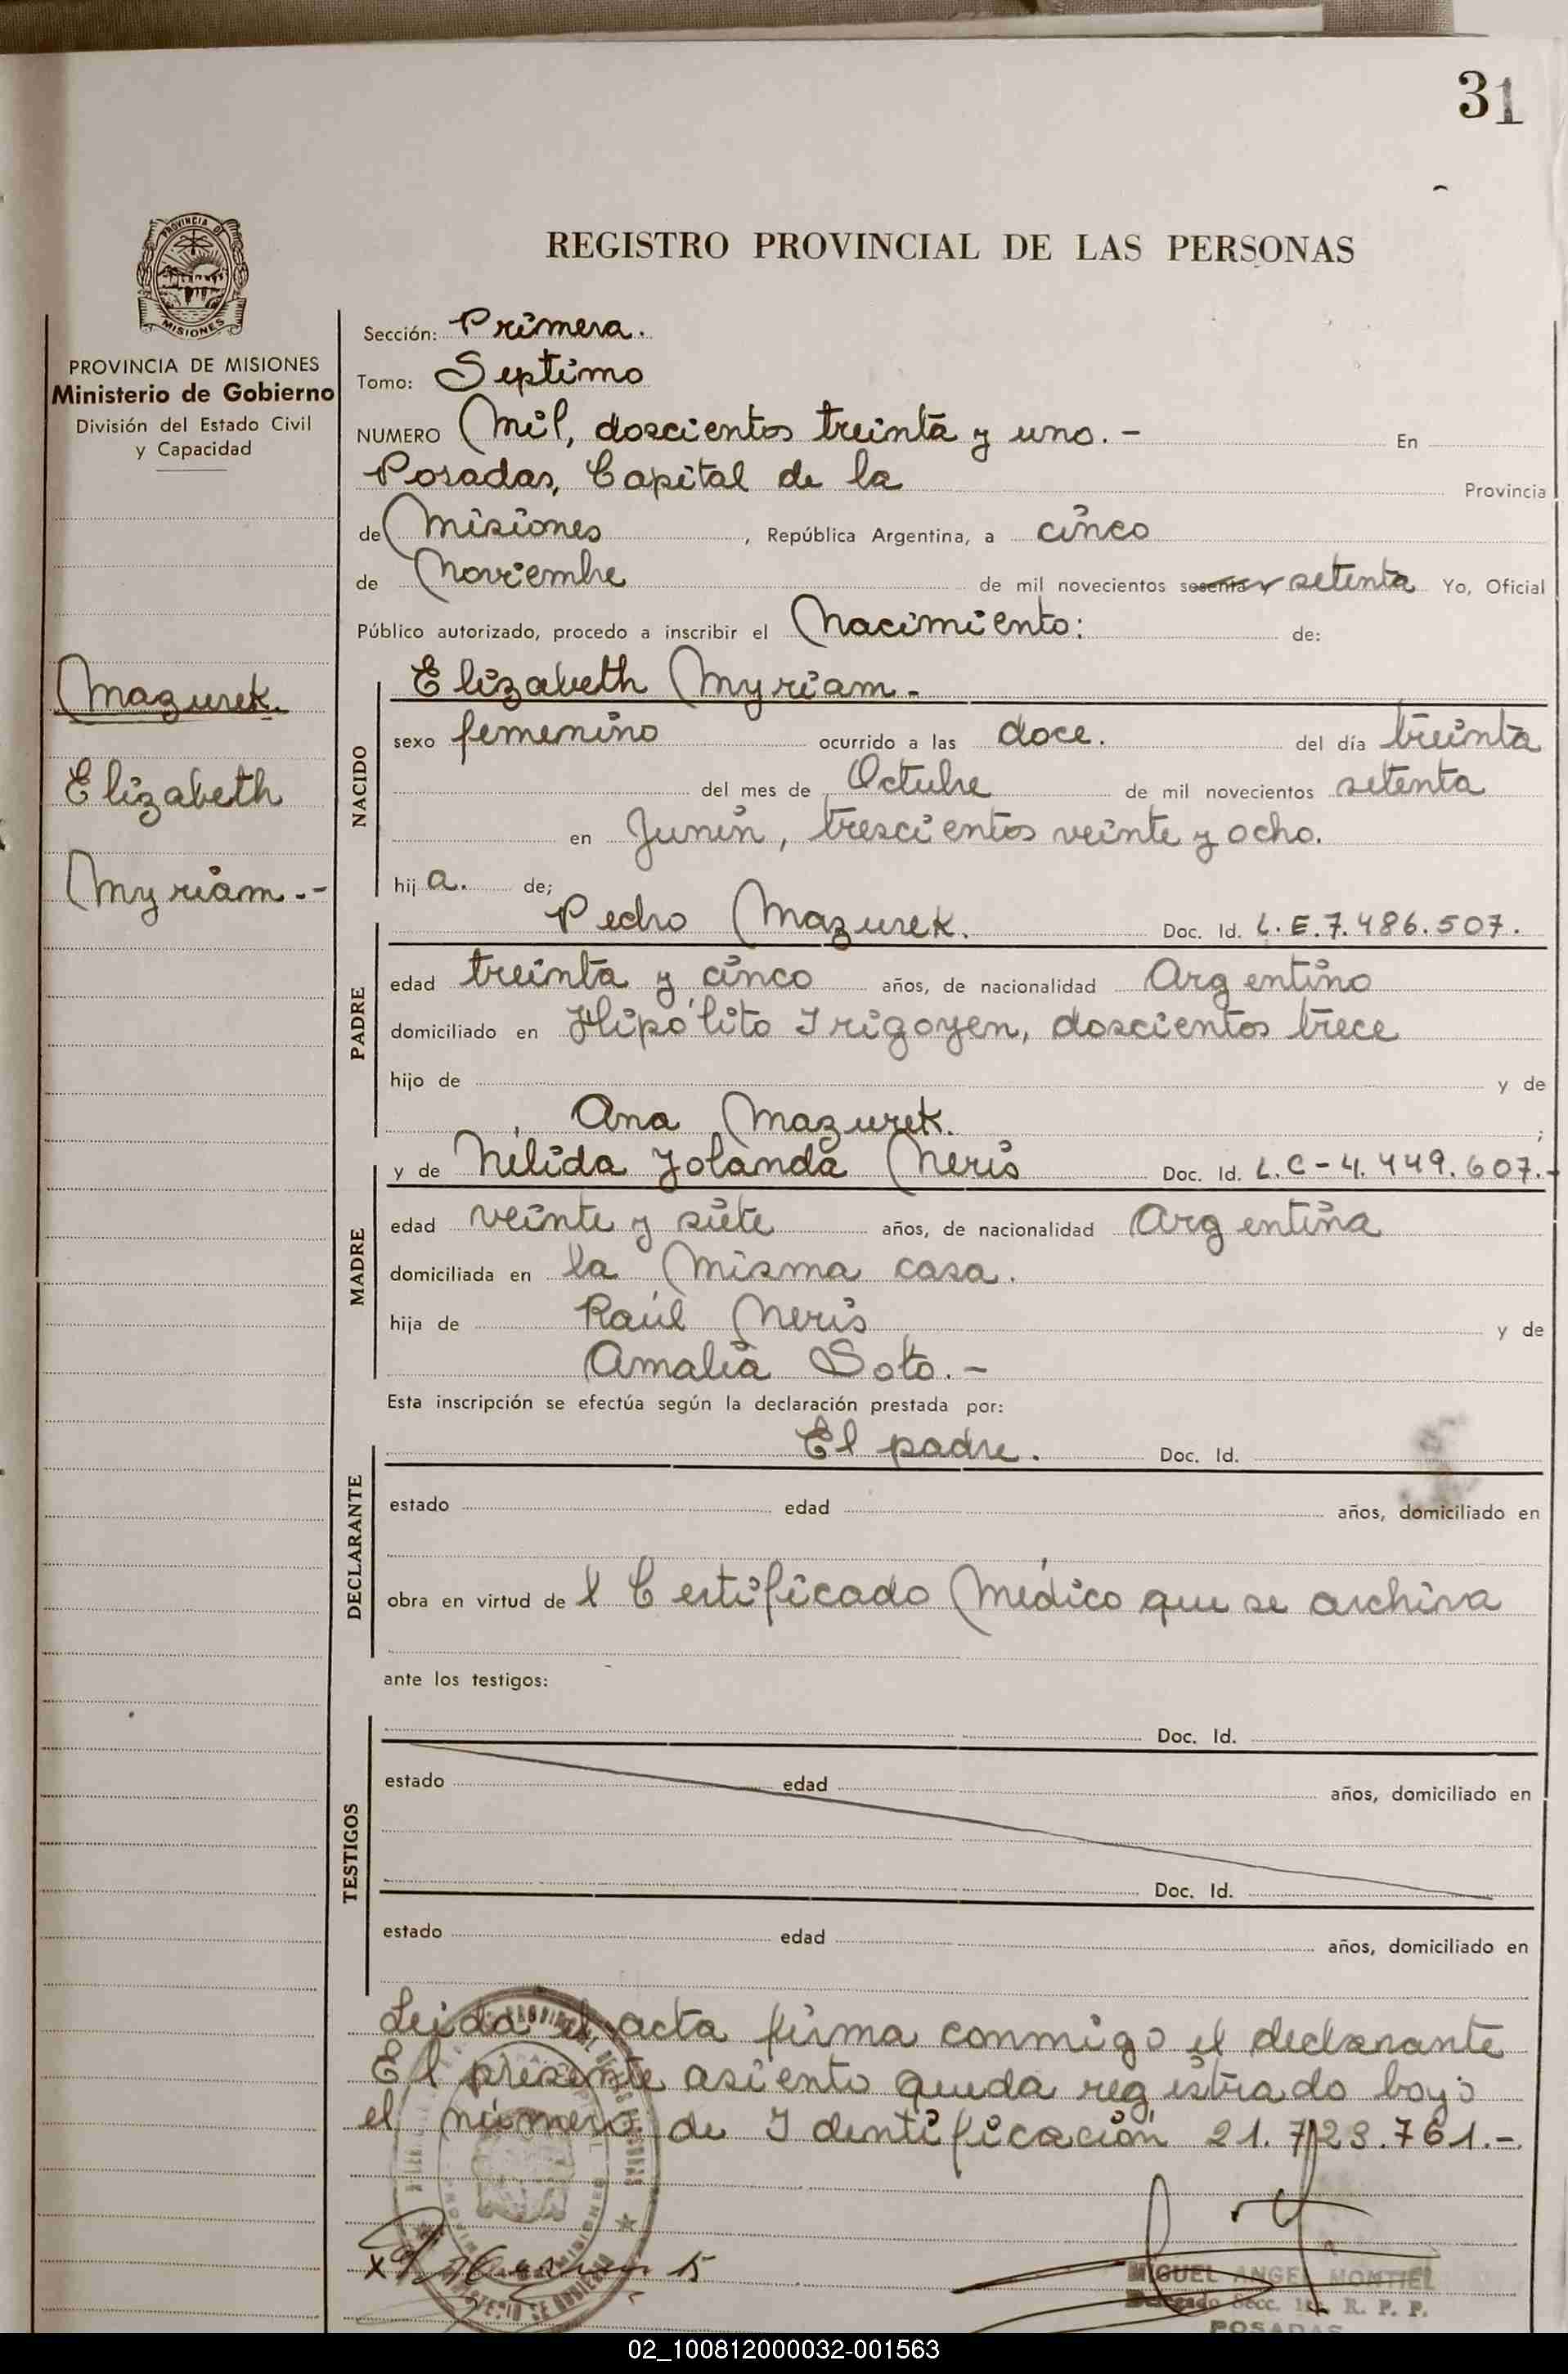 31
PROVINCIA DE
MISIONES
REGISTRO PROVINCIAL DE LAS PERSONAS
PROVINCIA DE MISIONES
Ministerio de Gobierno
División del Estado Civil
y Capacidad
Mazurek.
Elizabeth
Myriam.-
Sección: Primera.
Tomo: Septimo
NUMERO Mil, doscientos treinta y uno.- En
Posadas, Capital de la Provincia
de Misiones, República Argentina, a cinco
de Noviembre de mil novecientos sesenta y setenta Yo, Oficial
Público autorizado, procedo a inscribir el Nacimiento: de:
NACIDO
Elizabeth Myriam-
sexo femenino ocurrido a las doce. del día treinta
del mes de Octubre de mil novecientos setenta
en Junín, trescientos veinte y ocho.
hija. de;
PADRE
Pedro Mazurek. Doc. Id. L.E.7.486.507.
edad treinta y cinco años, de nacionalidad Argentino
domiciliado en Hipólito Irigoyen, doscientos trece
hijo de y de
Ana Mazurek. ;
MADRE
y de Nélida Yolanda Neris Doc. Id. L.C-4.449.607.-
edad veinte y siete años, de nacionalidad Argentina
domiciliada en la misma casa.
hija de Raúl Neris y de
Amalia Soto.-
Esta inscripción se efectúa según la declaración prestada por:
DECLARANTE
El padre. Doc. Id.
estado edad años, domiciliado en
obra en virtud del Certificado Médico que se archiva
ante los testigos:
TESTIGOS
Doc. Id.
estado edad años, domiciliado en
Doc. Id.
estado edad años, domiciliado en
Leida el acta firma conmigo el declarante
El presente asiento queda registrado bajo
el número de Identificación 21.723.761.-
MIGUEL ANGEL MONTIEL
Delegado Secc. 1ra. R. P. P.
POSADAS
02_100812000032-001563